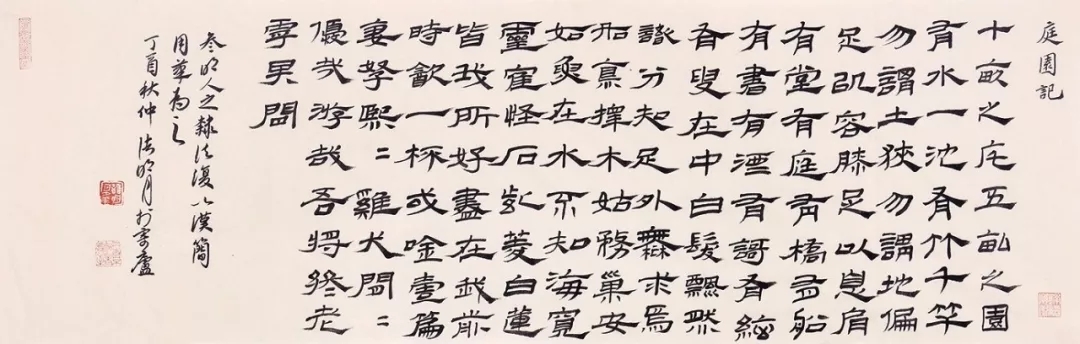 庭園記
十畝之宅五畝之園
有水一池有竹千竿
勿謂土狹勿謂地偏
足以容膝足以息肩
有堂有庭有橋有船
有書有酒有歌有絃
有叟在中白髮飄然
識分知足外無求焉
鳥擇木姑務巢安
如魚在水不知海寬
靈雀怪石紫菱白蓮
皆我所好盡在我前
時飲一杯或吟壹篇
妻孥熙〻雞犬閒〻
優哉游哉吾將終老
乎其間
參明人之隸法復以漢簡
用筆為之
丁酉秋仲明月於廬